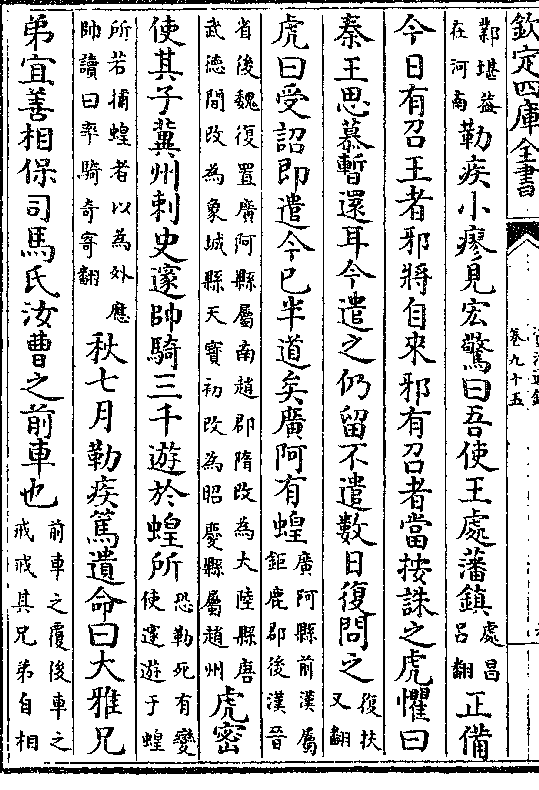 欽定四庫全書
卷九十五
鄴堪益
在河南
勒疾小瘳見宏驚曰吾使王處藩鎮
處昌
呂翻
正備
今日有召王者邪將自來邪有召者當按誅之虎懼曰
秦王思慕暫還耳今遣之仍留不遣數日復問之
復扶
又翻
虎曰受詔即遣今已半道矣廣阿有蝗
廣阿縣前漢屬
鉅鹿郡後漢晉
省後魏復置廣阿縣屬南趙郡隋改為大陸縣唐
武德間改為象城縣天寶初改為昭慶縣屬趙州
虎密
使其子冀州刺史邃帥騎三千遊於蝗所
恐勒死有變
使邃遊于蝗
所若捕蝗者以為外應
帥讀曰率騎奇寄翻
秋七月勒疾篤遺命曰大雅兄
弟宜善相保司馬氏汝曹之前車也
前車之覆後車之
戒戒其兄弟自相